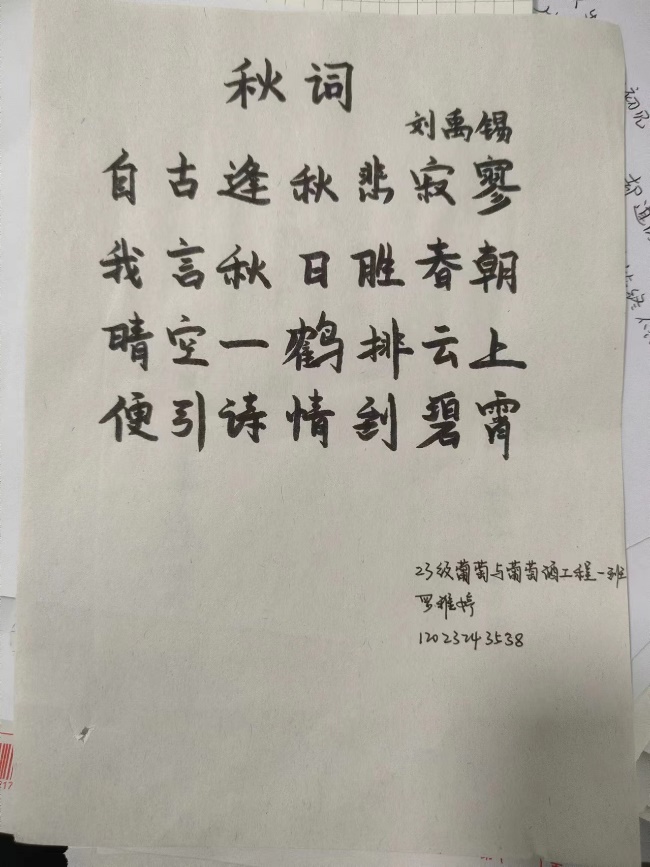 秋词
刘禹锡
自古逢秋悲寂寥
我言秋日胜春朝
晴空一鹤排云上
便引诗情到碧霄
23级葡萄与葡萄酒工程一班
罗雅婷
12023243538